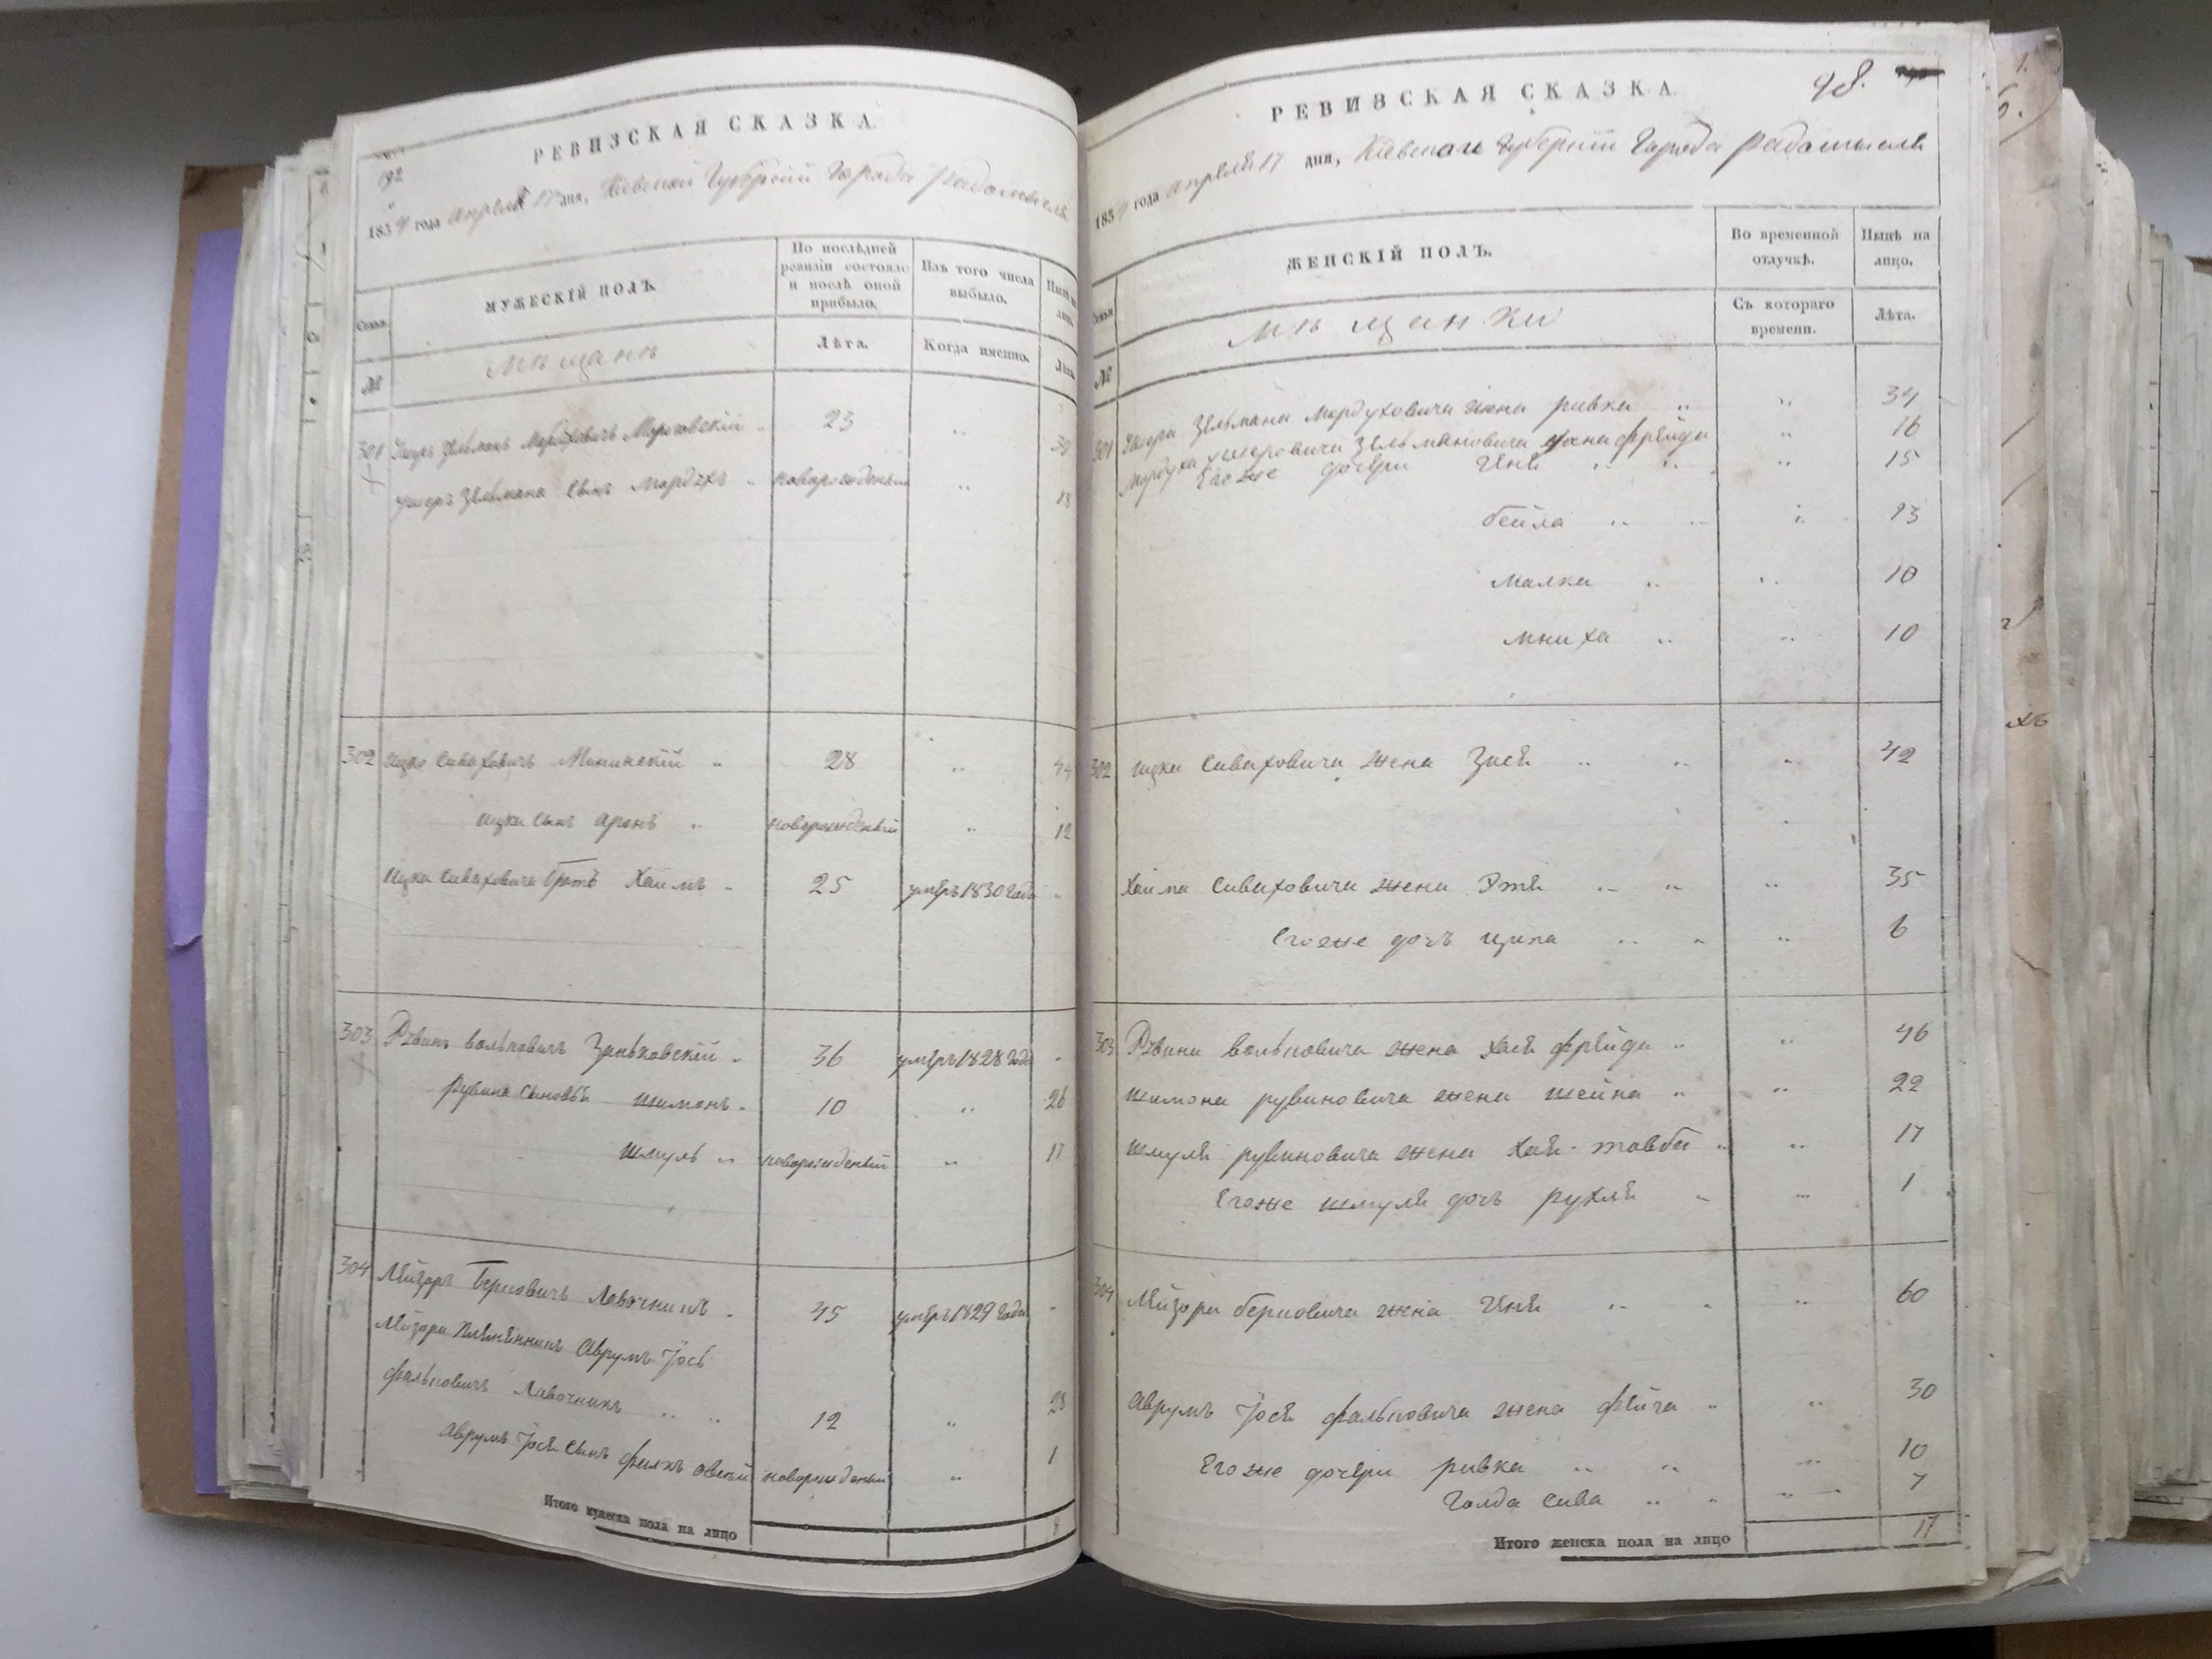 РЕВИЗСКАЯ СКАЗКА
192
1834 года апреля 17 дня, Киевской Губернии Города Радомысля
Семьи.
МУЖЕСКІЙ ПОЛЪ.
По послѣдней ревизіи состояло и послѣ оной прибыло.
Изъ того числа выбыло.
Нынѣ на лицо.
№
Мѣщане
Лѣта.
Когда именно.
Лѣта.
301 Зельманъ Мордуховичъ 23 " 39
Зельмана сынъ Мордухъ " новорожденый " 18
302 Ицко Сивахович Мининскій " 28 " 44
Ицка сынъ Аронъ " новорожденый " 12
Ицка Сиваховича братъ Хаимъ " 25 умеръ 1830 года "
303 Рувинъ Вольковичъ Заньковскій " 36 умеръ 1828 года "
Рувина сыновья Шимонъ " 10 " 26
Шмуль " новорожденый " 17
304 Лейзоръ Берковичъ Лавочникъ " 45 умеръ 1829 года "
Лейзора племянникъ Аврумъ Іось
Фальковичъ Лавочникъ " " 12 " 28
Аврумъ Іося сынъ новорожденый " 1
Итого мужеска пола на лицо 8
РЕВИЗСКАЯ СКАЗКА
48.
1834 года апреля 17 дня, Киевской Губернии Города Радомысля
Семьи
ЖЕНСКІЙ ПОЛЪ.
Во временной отлучкѣ.
Нынѣ на лицо.
№
Мѣщанки
Съ котораго времени.
Лѣта.
301 Зельмана Мордуховича жена Ривка " " 34
Мордуха Зельмановича жена Фрейда " 16
Егоже дочери Геня " " " 15
Бейла " " " 13
Малка " " 10
Мниха " " 10
302 Ицка Сиваховича жена Зися " " " 42
Хаима Сиваховича жена Этя " " " 35
Егоже дочь Ципа " " " 6
303 Рувина Вольковича жена Хая Фрейда " " 46
Шимона Рувиновича жена Шейна " " 22
Шмуля Рувиновича жена Хая-Товба " " 17
Егоже Шмуля дочь Рухля " " 1
304 Лейзора Берковича жена Геня " " " 60
Аврумъ Іося Фальковича жена Фейга " " 30
Егоже дочери Ривка " " " 10
Голда Сива " " " 7
Итого женска пола на лицо 17